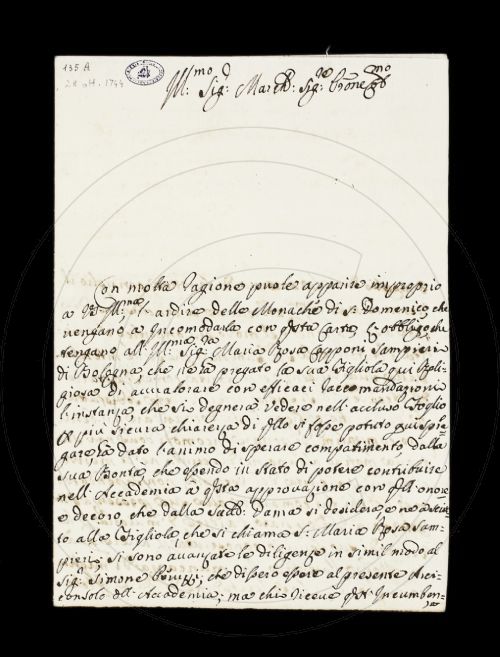 135 A
28 ott. 1744
Ill:mo Sig: March: Sig:
Con molta ragione puole apparire improprio
a l'ardire delle Monache di S: Domenico, che
vengano a incomodarla con questa carta. L'obbligo che
tengano all' Ill:ma Sig:ra Maria Rosa Capponi Sampieri
di Bologna, che ne ha pregato la sua Figliola qui Reli-
giosa di avvalorare con efficaci raccomandazioni
l'instanza, che si degnerà vedere nell'accluso foglio
e più sicura chiarezza di quello si fosse potuto qui spie
gare, ha dato l'animo di sperare compatimento dalla
sua Bontà, che essendo in stato di potere contribuire
nell'Accademia a questa approvazione con quell'onore,
e decoro che dalla Dama si desidera, e ne
to alla Figliola, che si chiama S: Maria Rosa Sam-
pieri, si sono avanzate le diligenze in simil modo al
Sig: Simone, che dissero essere al presente Arci-
consolo dell'Accademia; ma chi riceve quest'Incumben-